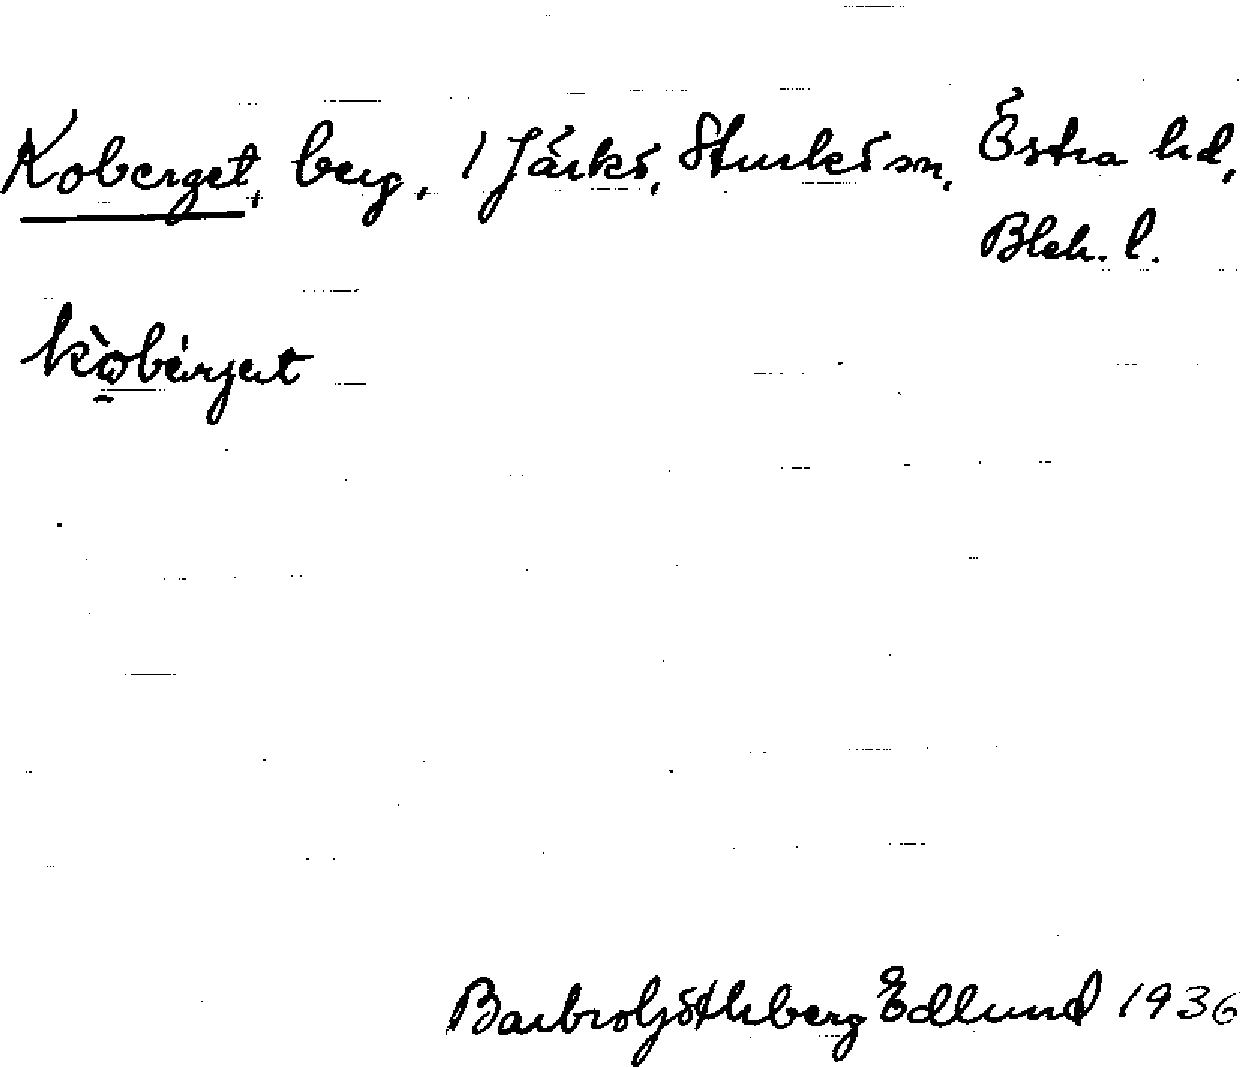 Koberget, berg, 1 Järkö, Sturkö sn, Östra hd,
Blek. l.
kòbérjet
Barbro Göthberg Edlund 1936